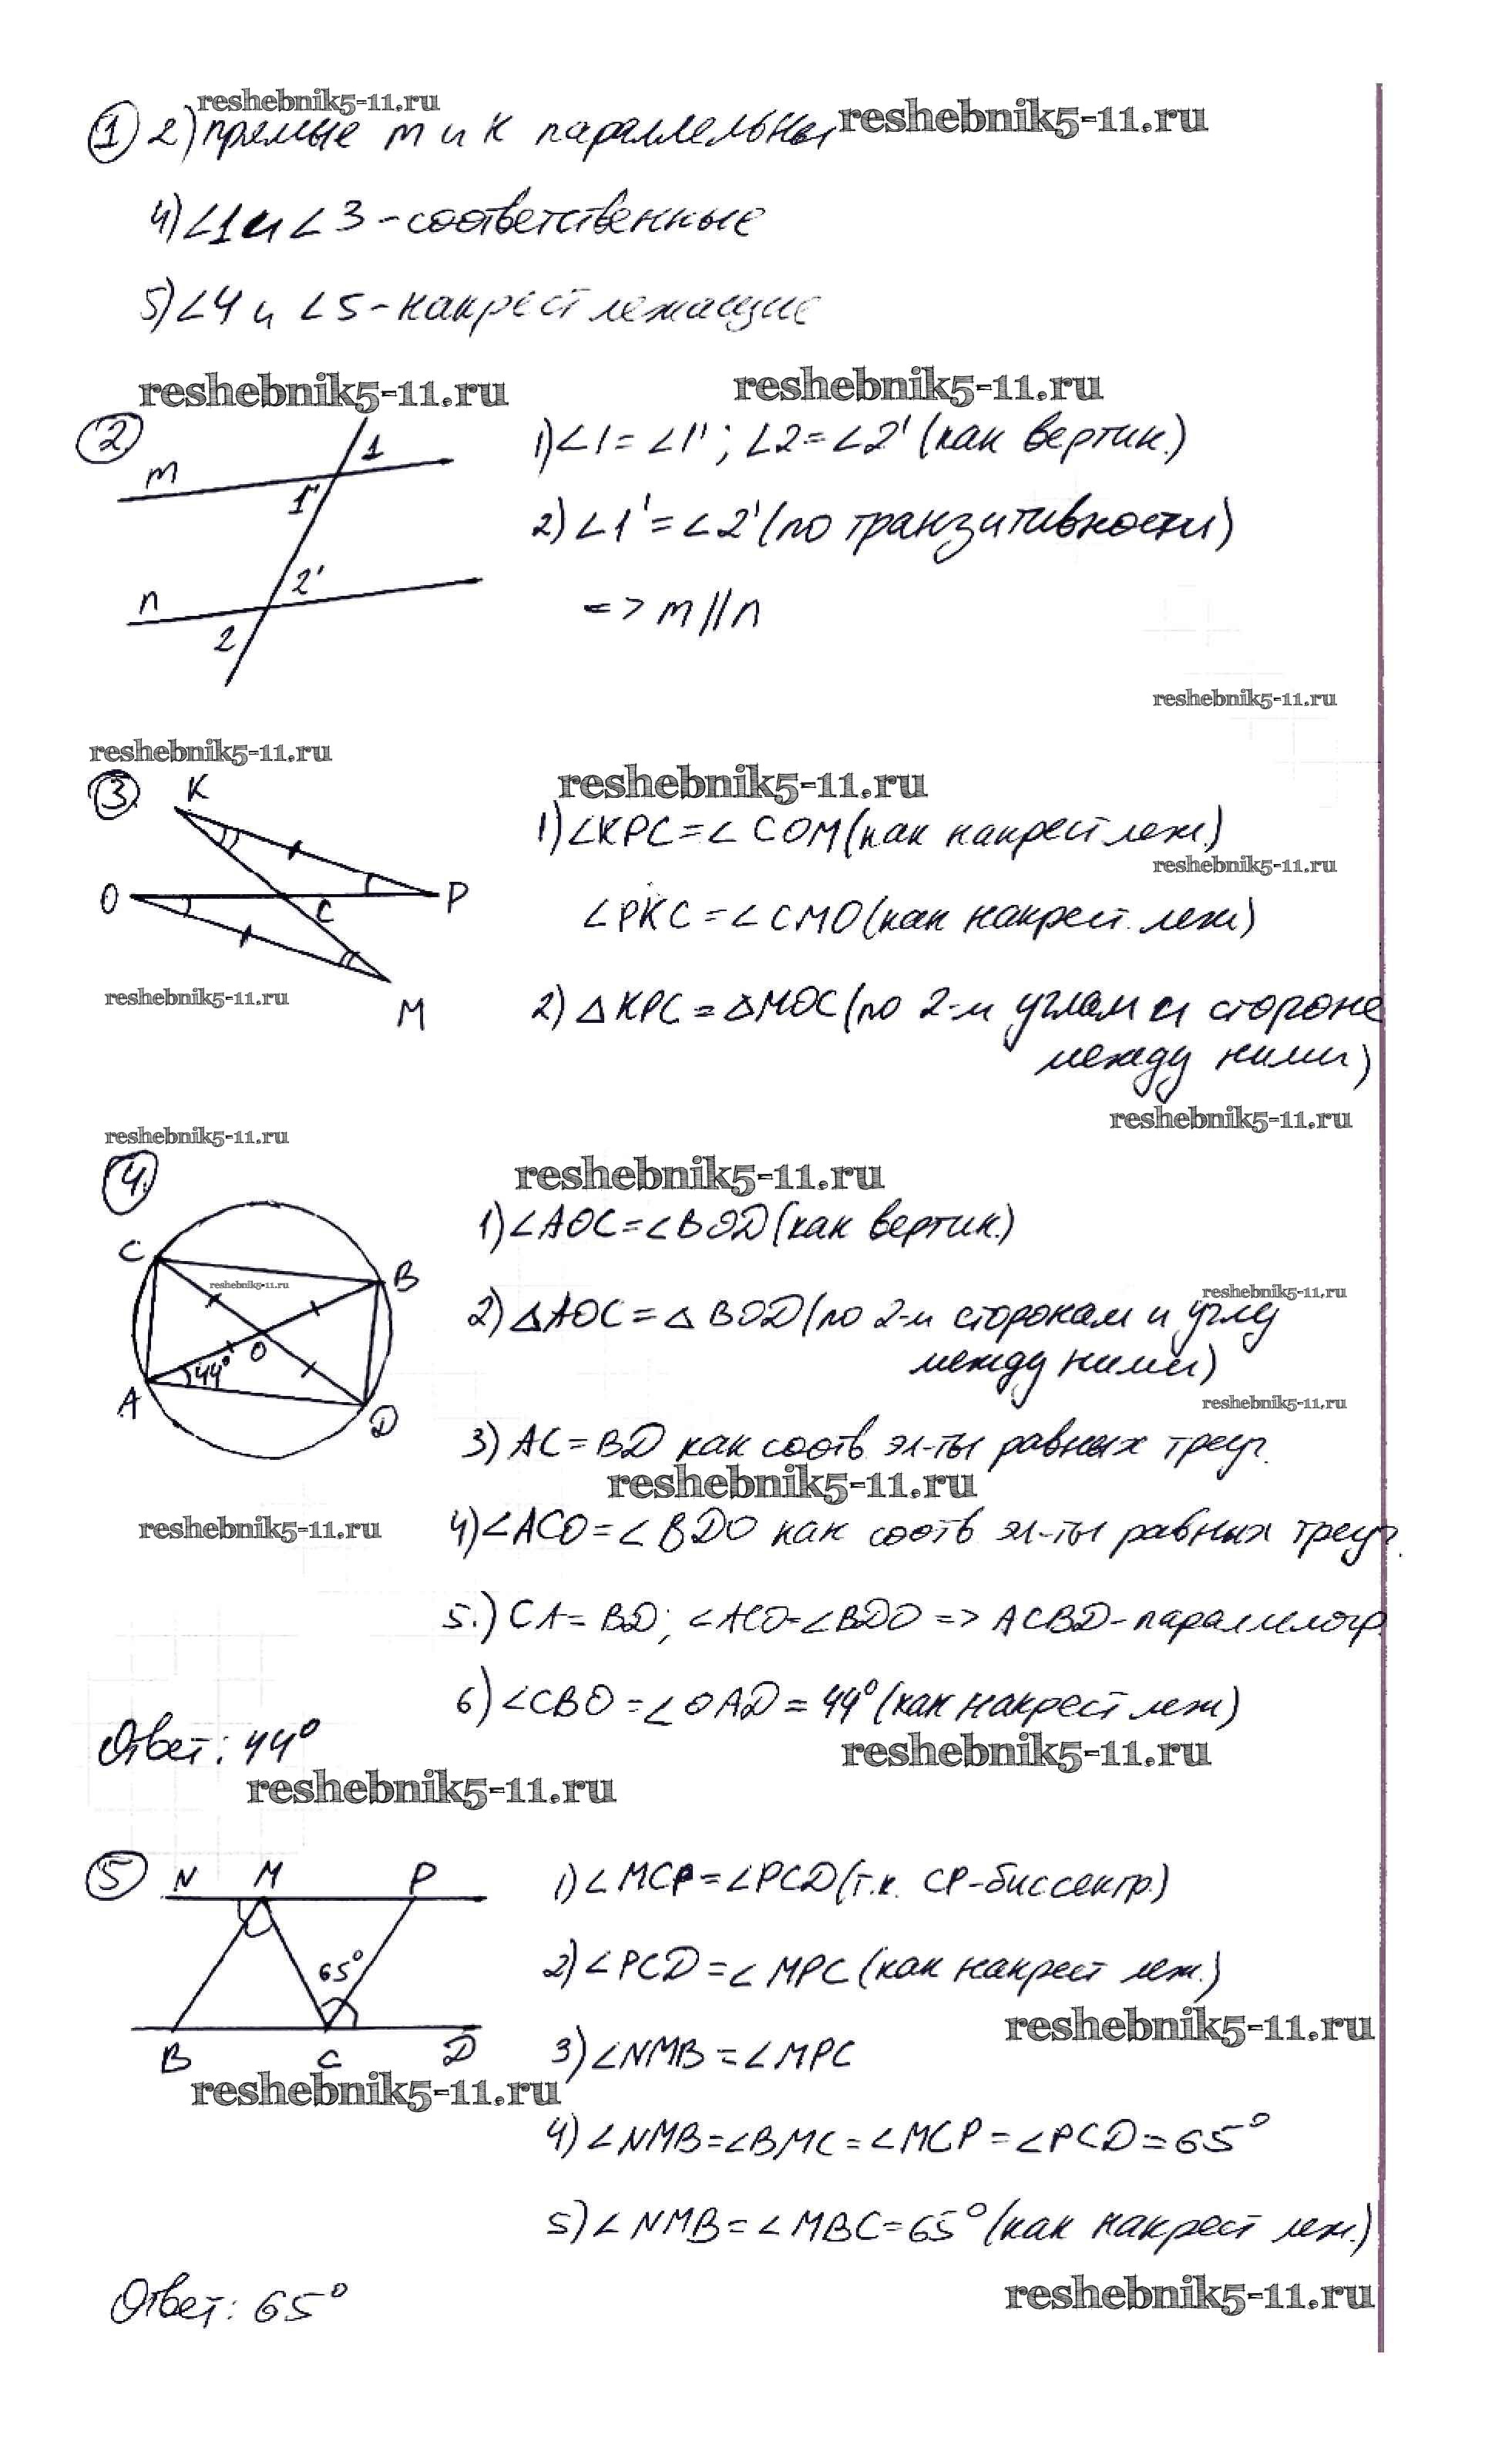 reshebnik5-11.ru
① 2) прямые m и k параллельны reshebnik5-11.ru
4) ∠1 и ∠3 - соответственные
5) ∠4 и ∠5 - накрест лежащие
reshebnik5-11.ru reshebnik5-11.ru
②
m 1
1'
n 2'
2
1) ∠1 = ∠1' ; ∠2 = ∠2' (как вертик.)
2) ∠1' = ∠2' (по транзитивности)
=> m || n
reshebnik5-11.ru
reshebnik5-11.ru
③ K
O C P
M
reshebnik5-11.ru
1) ∠KPC = ∠COM (как накрест леж.)
reshebnik5-11.ru
∠PKC = ∠CMO (как накрест. леж)
reshebnik5-11.ru
2) △KPC = △MOC (по 2-м углам и стороне
между ними)
reshebnik5-11.ru
reshebnik5-11.ru
④
C B
reshebnik5-11.ru
44° O
A D
reshebnik5-11.ru
1) ∠AOC = ∠BOD (как вертик.)
reshebnik5-11.ru
2) △AOC = △BOD (по 2-м сторонам и углу
между ними)
reshebnik5-11.ru
3) AC = BD как соотв эл-ты равных треуг.
reshebnik5-11.ru
reshebnik5-11.ru
4) ∠ACO = ∠BDO как соотв эл-ты равных треуг.
5.) CA = BD; ∠ACO = ∠BDO => ACBD - параллелогр.
6) ∠CBO = ∠OAD = 44° (как накрест леж)
Ответ: 44°
reshebnik5-11.ru
reshebnik5-11.ru
⑤ N M P
65°
B C D
reshebnik5-11.ru
1) ∠MCP = ∠PCD (т.к. CP - биссектр.)
2) ∠PCD = ∠MPC (как накрест леж.)
reshebnik5-11.ru
3) ∠NMB = ∠MPC
4) ∠NMB = ∠BMC = ∠MCP = ∠PCD = 65°
5) ∠NMB = ∠MBC = 65° (как накрест леж.)
reshebnik5-11.ru
Ответ: 65°